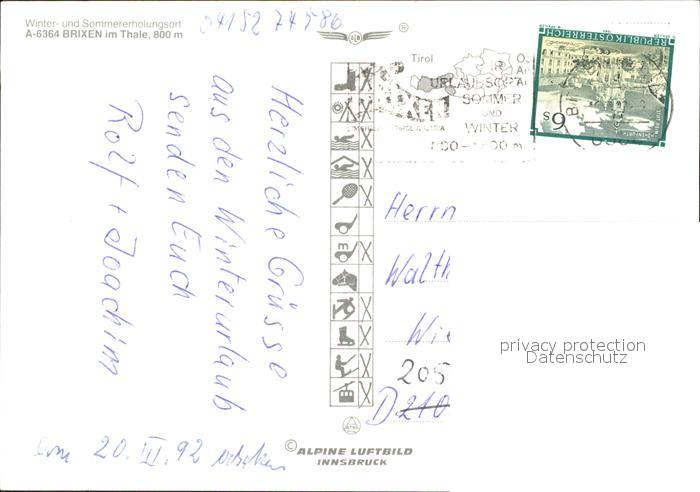 Winter- und Sommererholungsort
A-6364 BRIXEN im Thale, 800 m
04152 74586
Herzliche Grüsse
aus den Winterurlaub
senden Euch
Rolf + Joachim
20. III. 92
Tirol
IHR
URLAUBSORT
SOMMER
UND
WINTER
800 -
REPUBLIK ÖSTERREICH
S 6
m
Herrn
Walth
Wie
205
D 210
privacy protection
Datenschutz
© ALPINE LUFTBILD
INNSBRUCK